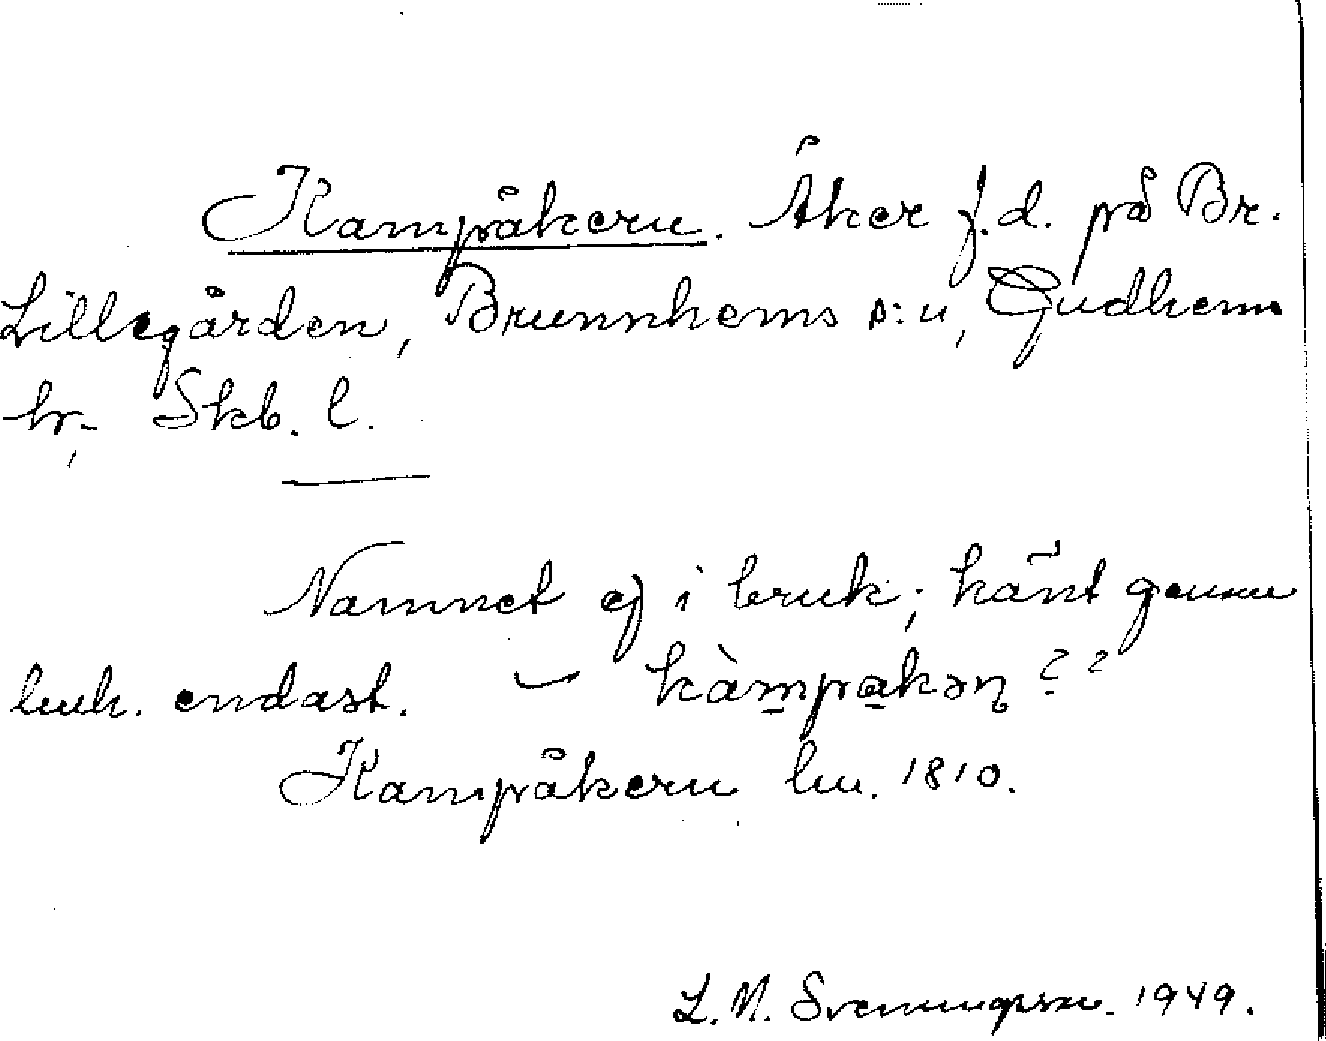 Kampåkern. Åker f.d. på Br.
Lillegården, Brunnhems s:n, Gudhems
hr, Skb. l.
Namnet ej i bruk; känt genom
luh. endast. – kàmpakən??
Kampåkern lm. 1810.
L. N. Svenungsson. 1949.